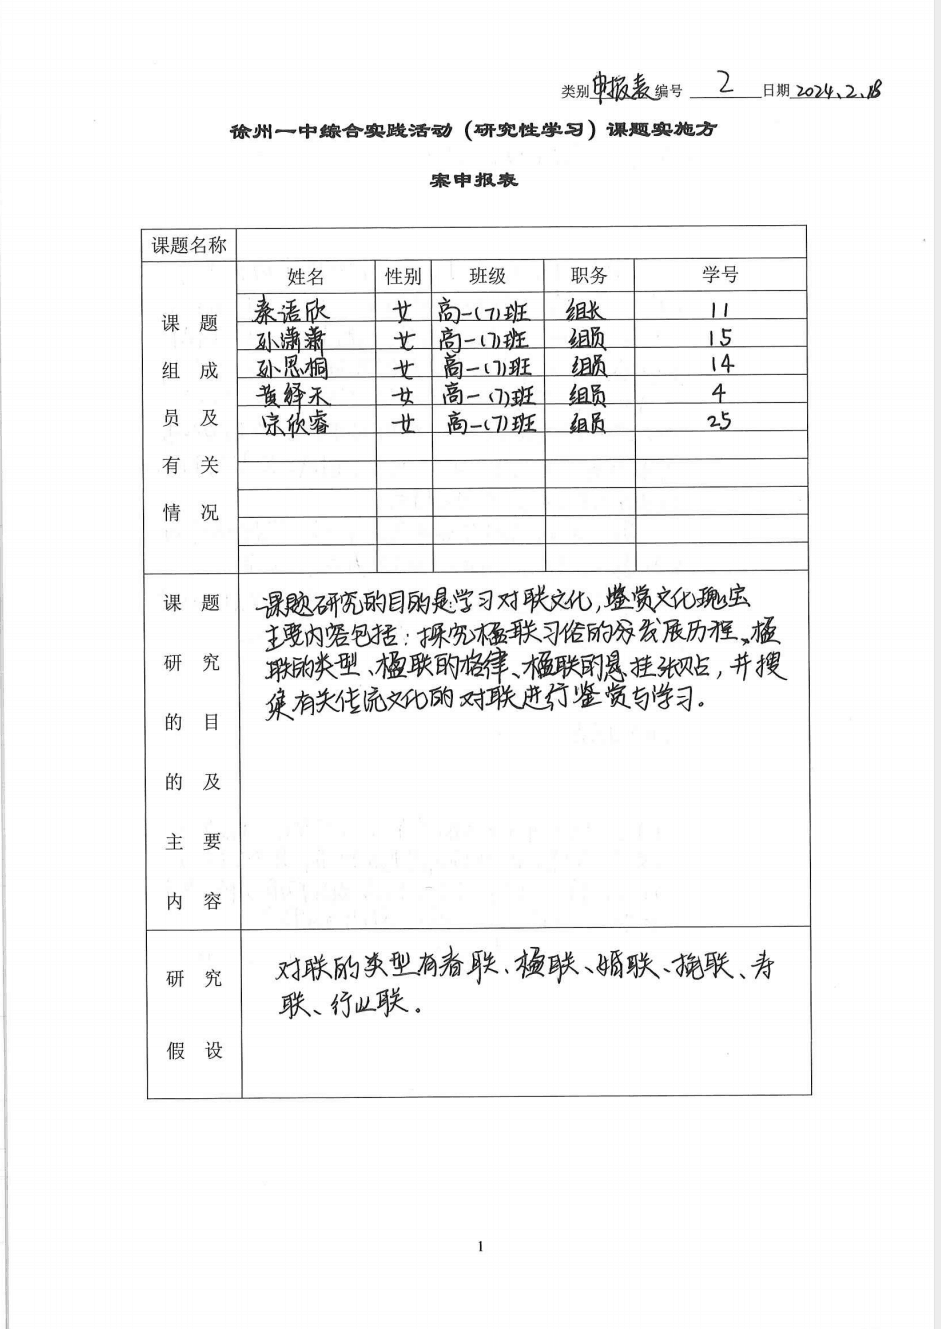 类别 申报表 编号 2 日期 2024.2.18
徐州一中综合实践活动（研究性学习）课题实施方
案申报表
课题名称
课题组成员及有关情况
姓名 性别 班级 职务 学号
秦语欣 女 高一(7)班 组长 11
孙潇潇 女 高一(7)班 组员 15
孙思桐 女 高一(7)班 组员 14
黄绎天 女 高一(7)班 组员 4
宗欣睿 女 高一(7)班 组员 25
课题研究的目的及主要内容
课题研究的目的是学习对联文化,鉴赏文化瑰宝
主要内容包括：探究楹联习俗的发展历程、楹
联的类型、楹联的格律、楹联的悬挂张贴，并搜
集有关传统文化的对联进行鉴赏与学习。
研究假设
对联的类型有春联、楹联、婚联、挽联、寿
联、行业联。
1